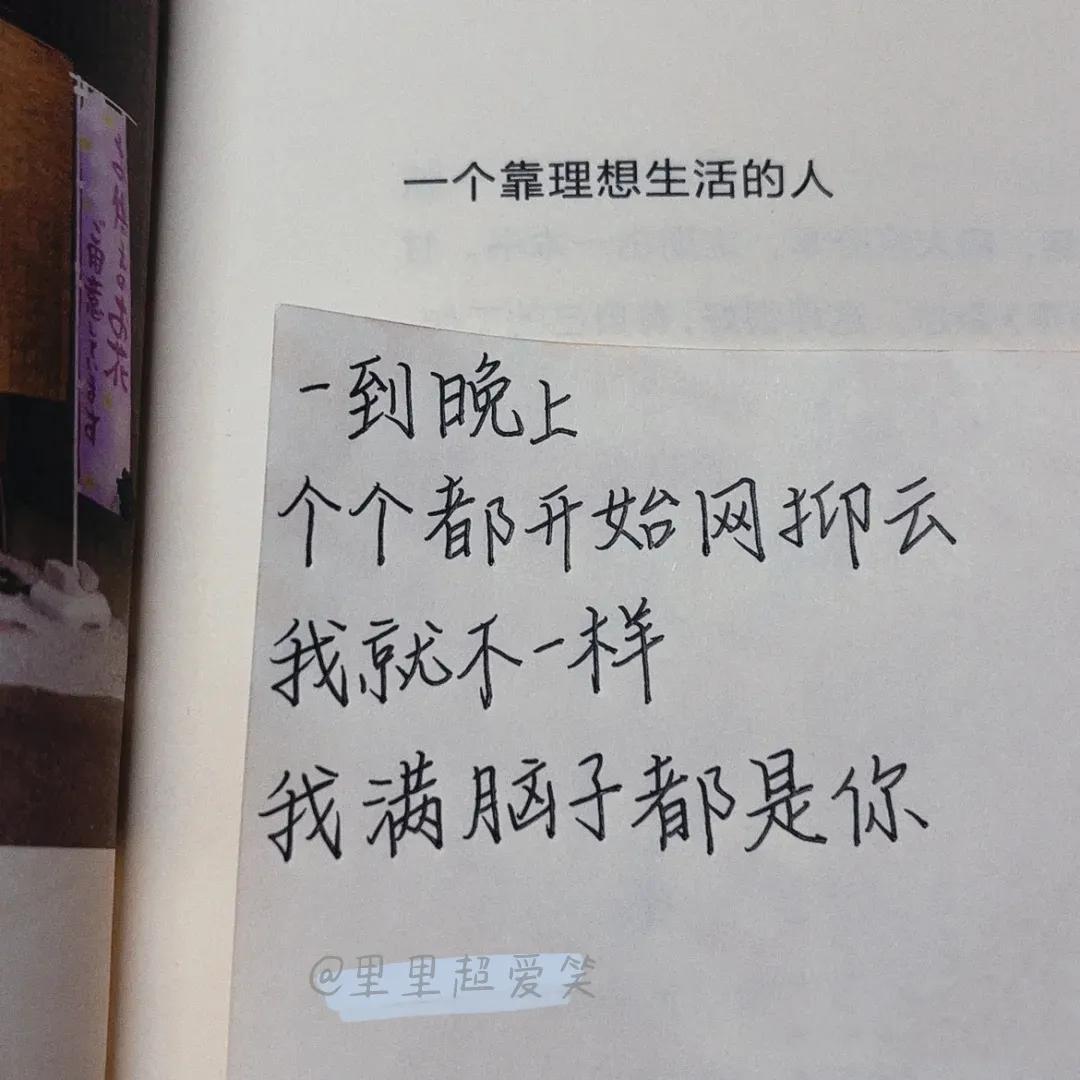 一个靠理想生活的人
一到晚上
个个都开始网抑云
我就不一样
我满脑子都是你
@里里超爱笑